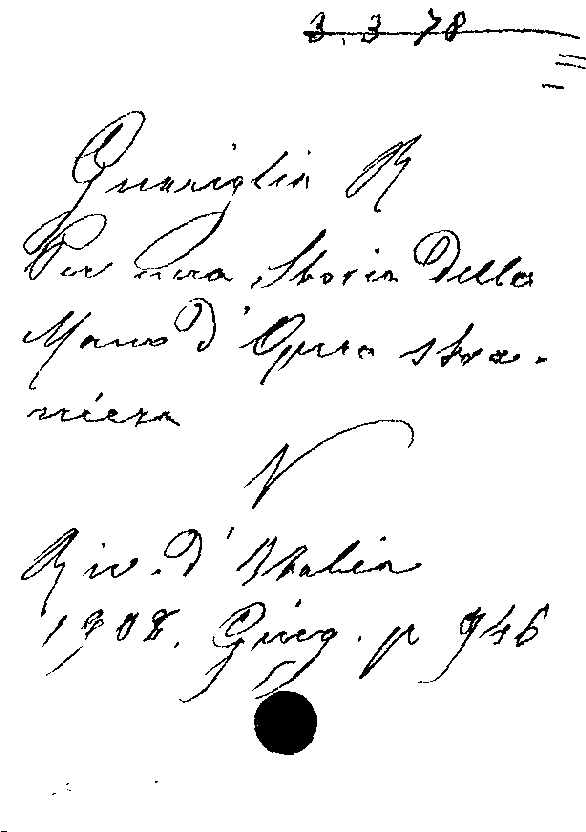 3.3.78
Guariglia R
Per una Storia Della
Mano d'Opera stra-
niera
Riv. d'Italia
1908. Giug. p 946